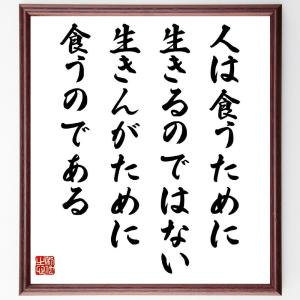 人は食うために
生きるのではない
生きんがために
食うのである